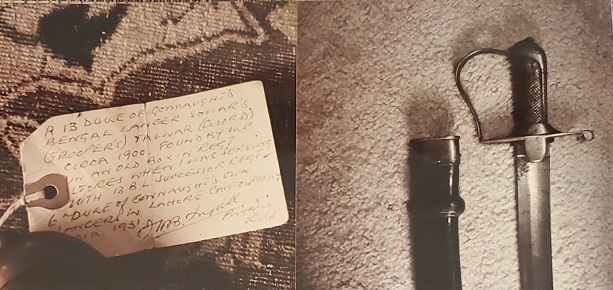 A 13 DUKE OF CONNAUGHT'S
BENGAL LANCER SOWAR'S
(TROOPER'S) TALWAR (SWORD)
CIRCA 1900. FOUND BY ME
IN AN OLD BOX IN REGT
STORES WHEN I WAS SERVING
WITH 13 B L SUCCESSOR REGT
6 DUKE OF CONNAUGHT'S OWN
LANCERS IN LAHORE CANTONMENT
INDIA. 193